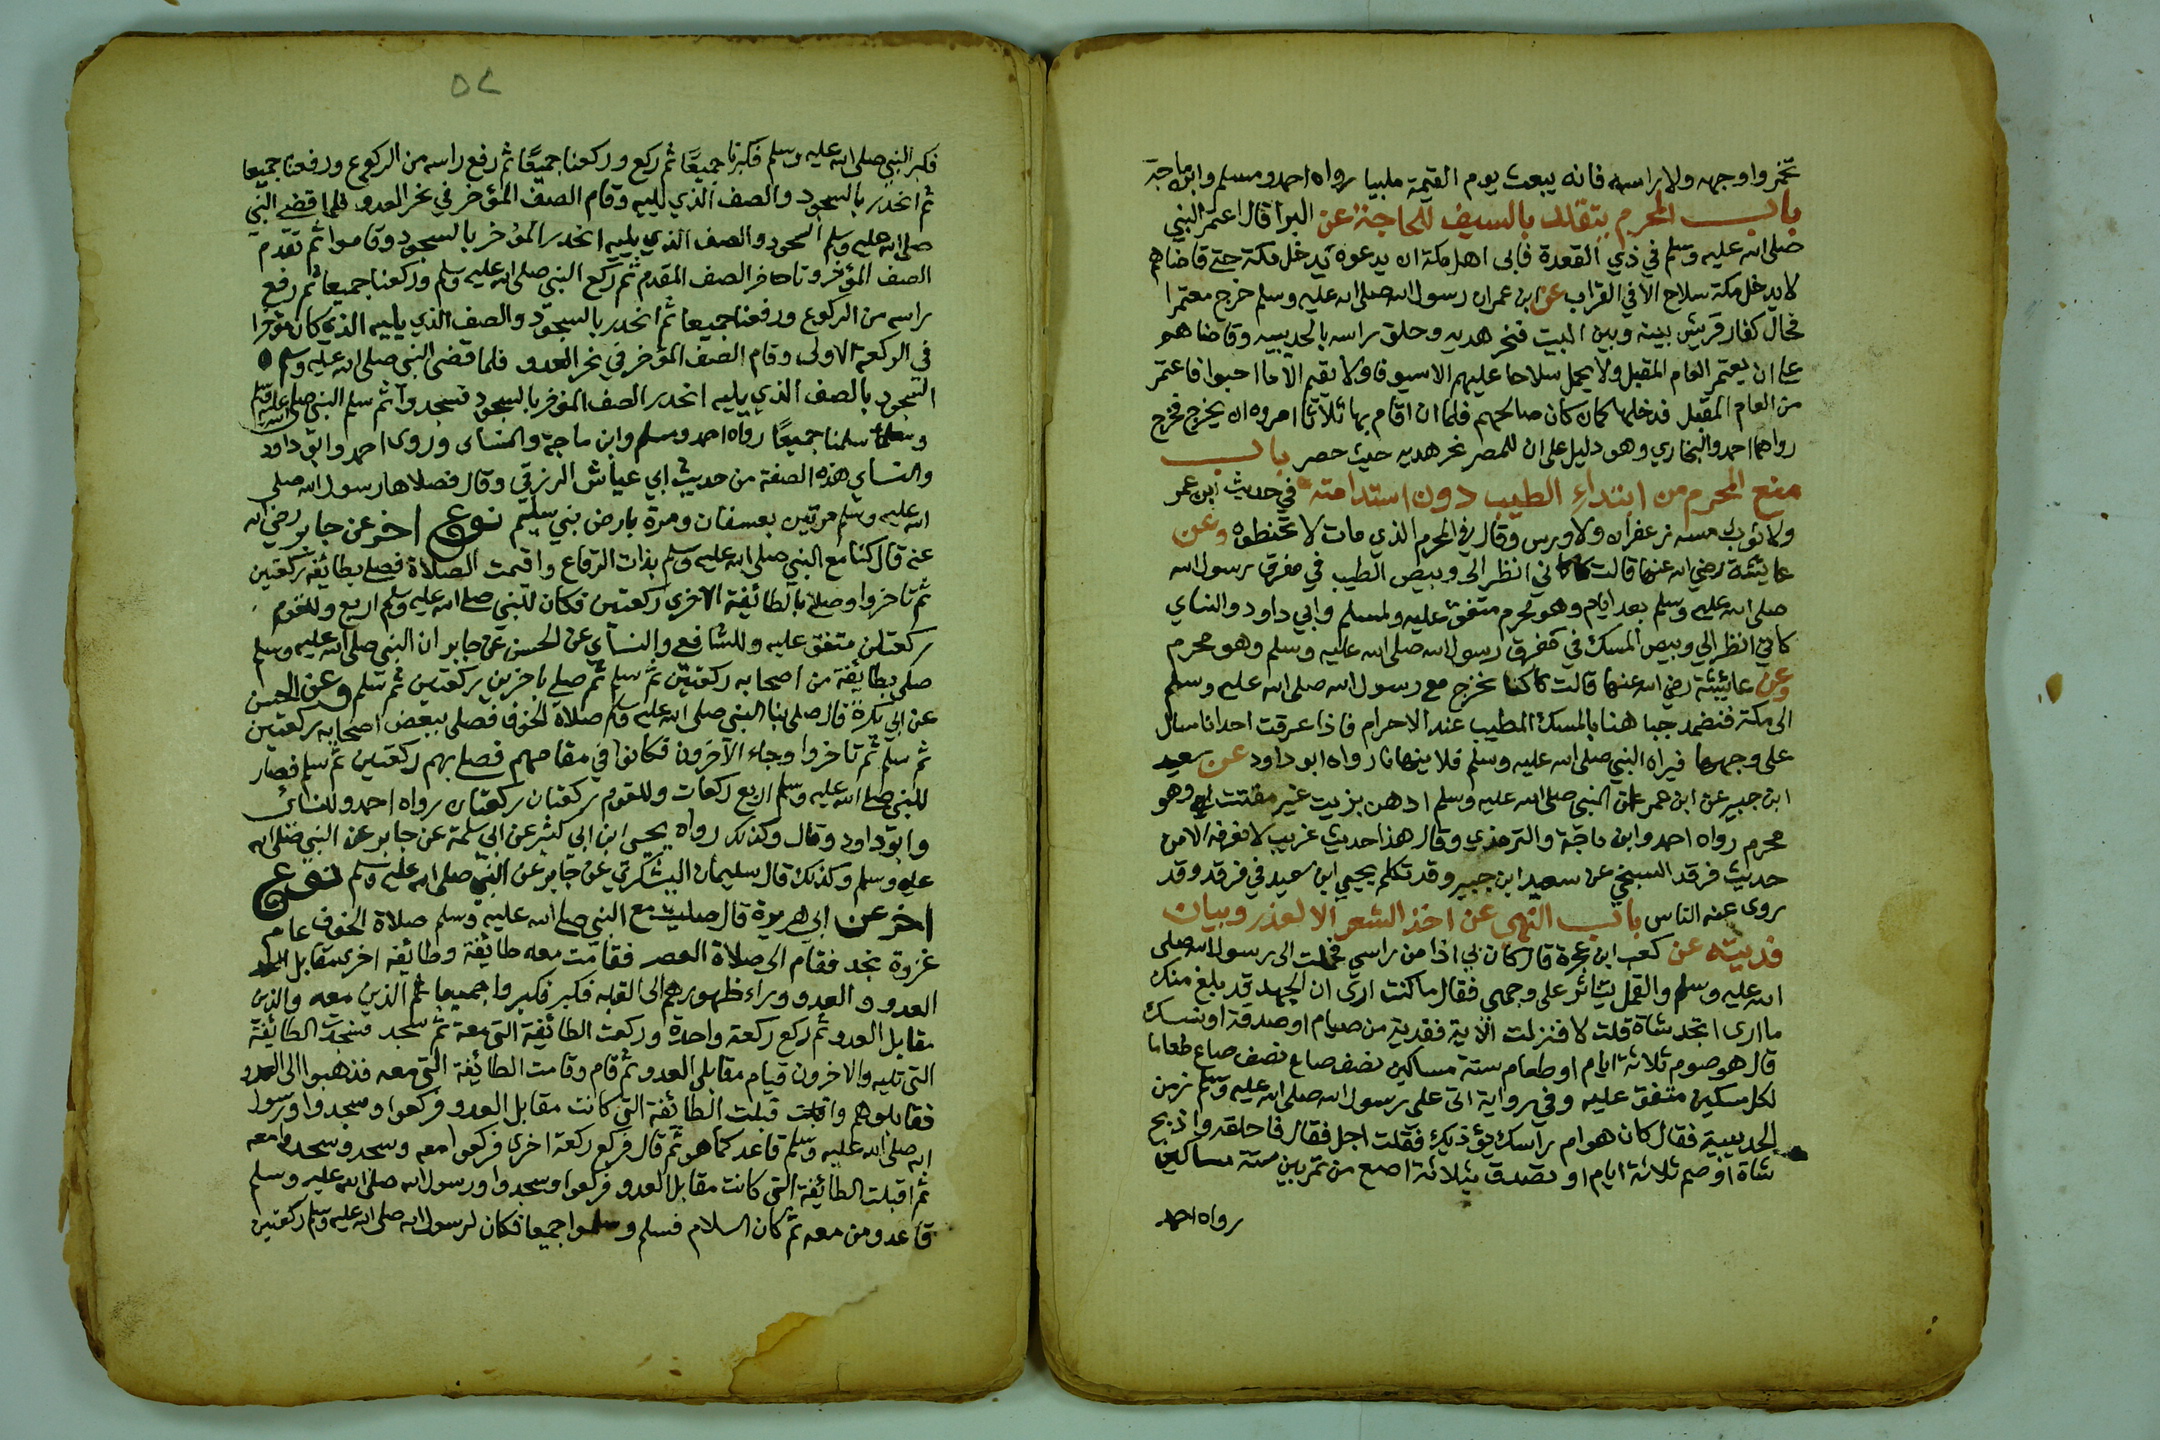 تخمروا وجهه ولا راسه فانه يبعث يوم القيمة ملبيا رواه احمد ومسلم وابن ماجة
باب المحرم يتقلد بالسيف للحاجة عن البرا قال اعتمر النبي
صلى الله عليه وسلم في ذي القعدة فابى اهل مكة ان يدعوه يدخل مكة حتى قاضاهم
لا يدخل مكة سلاح الا في القراب عن ابن عمر ان رسول الله صلى الله عليه وسلم خرج معتمرا
فحال كفار قريش بينه وبين البيت فنحر هديه وحلق راسه بالحديبيه وقاضاهم
على ان يعتمر العام المقبل ولا يحمل سلاحا عليهم الا سيوفا ولا يقيم الا ما احبوا فاعتمر
من العام المقبل فدخلها كما كان صالحهم فلما ان اقام بها ثلاثا امروه ان يخرج فخرج
رواهما احمد والبخاري وهو دليل على ان للمحصر نحر هديه حيث حصر باب
منع المحرم من ابتداء الطيب دون استدامته في حديث ابن عمر
ولا ثوب مسه زعفران ولا ورس وقال في المحرم الذي مات لا تحنطوه وعن
عايشة رضي الله عنها قالت كاني انظر الى وبيص الطيب في مفرق رسول الله
صلى الله عليه وسلم بعد ايام وهو محرم متفق عليه ولمسلم وابي داود والنساي
كاني انظر الي وبيص المسك في مفرق رسول الله صلى الله عليه وسلم وهو محرم
وعن عائشة رضي الله عنها قالت كنا نخرج مع رسول الله صلى الله عليه وسلم
الى مكة فنضمد جباهنا بالمسك المطيب عند الاحرام فاذا عرقت احدانا سال
على وجهها فيراه النبي صلى الله عليه وسلم فلا ينهانا رواه ابو داود عن سعيد
ابن جبير عن ابن عمر ان النبي صلى الله عليه وسلم ادهن بزيت غير مقتت وهو
محرم رواه احمد وابن ماجة والترمذي وقال هذا حديث غريب لا نعرفه الا من
حديث فرقد السبخي عن سعيد ابن جبير وقد تكلم يحيى ابن سعيد في فرقد وقد
روى عنه الناس باب النهى عن اخذ الشعر الا لعذر وبيان
فديته عن كعب ابن عجرة قال كان بي اذا من راسي فحملت الى رسول الله صلى
الله عليه وسلم والقمل يتناثر على وجهي فقال ما كنت ارى ان الجهد قد بلغ منك
ما ارى اتجد شاة قلت لا فنزلت الاية ففدية من صيام او صدقة او نسك
قال هو صوم ثلاثة ايام او طعام ستة مساكين نصف صاع نصف صاع طعاما
لكل مسكين متفق عليه وفي رواية اتى علي رسول الله صلى الله عليه وسلم زمن
الحديبية فقال كان هوام راسك يؤذيك فقلت اجل فقال فاحلقه واذبح
شاة او صم ثلاثة ايام او تصدق بثلاثة اصع من تمر بين ستة مساكين
رواه احمد
٥٧
فكبر النبي صلى الله عليه وسلم فكبرنا جميعًا ثم ركع وركعنا جميعًا ثم رفع راسه من الركوع ورفعنا جميعا
ثم انحدر بالسجود والصف الذي يليه وقام الصف المؤخر في نحر العدو فلما قضى النبي
صلى الله عليه وسلم السجود والصف الذي يليه انحدر المؤخر بالسجود وقاموا ثم تقدم
الصف المؤخر وتاخر الصف المقدم ثم ركع النبي صلى الله عليه وسلم وركعنا جميعا ثم رفع
راسه من الركوع ورفعنا جميعا ثم انحدر بالسجود والصف الذي يليه الذي كان مؤخرا
في الركعة الاولى وقام الصف المؤخر في نحر العدو فلما قضى النبي صلى الله عليه وسلم
السجود بالصف الذي يليه انحدر الصف المؤخر بالسجود فسجدوا ثم سلم النبي صلى الله عليه وسلم
وسلمنا جميعًا رواه احمد ومسلم وابن ماجة والنساى وروى احمد وابو داود
والنساي هذه الصفة من حديث ابي عياش الزرقي وقال فصلاها رسول الله صلى
الله عليه وسلم مرتين بعسفان ومرة بارض بني سليم نوع اخر عن جابر رضي الله
عنه قال كنا مع النبي صلى الله عليه وسلم بذات الرقاع واقيمت الصلاة فصلى بطائفة ركعتين
ثم تاخروا وصلى بالطائفة الاخرى ركعتين فكان للنبي صلى الله عليه وسلم اربع وللقوم
ركعتان متفق عليه وللشافعي والنسآي عن الحسن عن جابر ان النبي صلى الله عليه وسلم
صلى بطائفة من اصحابه ركعتين ثم سلم ثم صلى باخرين ركعتين ثم سلم وعن الحسن
عن ابى بكرة قال صلى بنا النبي صلى الله عليه وسلم صلاة الخوف فصلى ببعض اصحابه ركعتين
ثم سلم ثم تاخروا وجاء الآخرون فكانوا في مقامهم فصلى بهم ركعتين ثم سلم فصار
للنبي صلى الله عليه وسلم اربع ركعات وللقوم ركعتان ركعتان رواه احمد والنسائى
وابو داود وقال وكذلك رواه يحيى ابن ابى كثير عن ابى سلمة عن جابر عن النبي صلى الله
عليه وسلم وكذلك قال سليمان اليشكري عن جابر عن النبي صلى الله عليه وسلم نوع
اخر عن ابي هريرة قال صليت مع النبي صلى الله عليه وسلم صلاة الخوف عام
غزوة نجد فقام الى صلاة العصر فقامت معه طائفة وطائفة اخرى مقابل
العدو والعدو وراء ظهورهم الى القبله فكبر فكبروا جميعا ثم الذين معه والذين
مقابل العدو ثم ركع ركعة واحدة وركعت الطائفة التي معه ثم سجد فسجدت الطائفة
التي تليه والاخرون قيام مقابل العدو ثم قام وقامت الطائفة التي معه فذهبوا الى العدو
فقابلوهم واقبلت الطائفة التي كانت مقابل العدو فركعوا وسجدوا ورسول
الله صلى الله عليه وسلم قاعد كما هو ثم قال فركع ركعة اخرى فركعوا معه وسجد وسجدوا معه
ثم اقبلت الطائفة التي كانت مقابل العدو فركعوا وسجدوا ورسول الله صلى الله عليه وسلم
قاعد ومن معه ثم كان السلام فسلم وسلموا جميعا فكان لرسول الله صلى الله عليه وسلم ركعتين